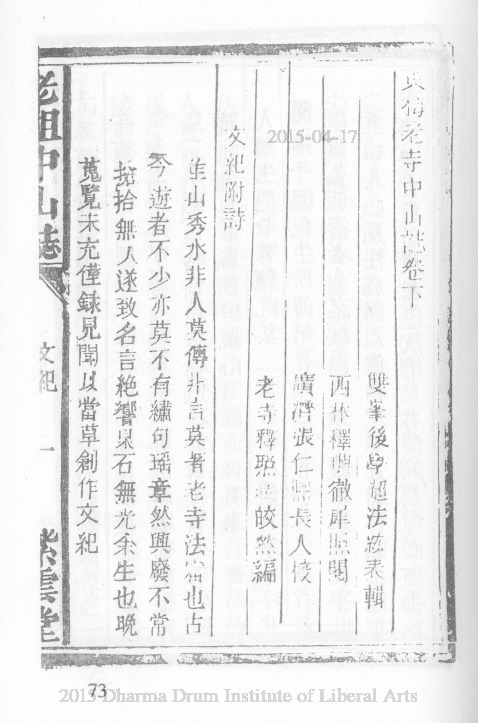 黃梅老寺中山誌卷下
雙峯後學超法絃表輯
西林釋照徹犀照閱
廣濟張仁熙長人校
老寺釋照皎然編
文紀附詩
佳山秀水非人莫傳非言莫著老寺法窟也古
今遊者不少亦莫不有繡句瑶章然興廢不常
捃拾無人遂致名言絶響泉石無光余生也晚
蒐覽未充僅錄見聞以當草創作文紀
老祖中山誌
文紀
一
紫雲堂
2015-04-17
73
2015 Dharma Drum Institute of Liberal Arts